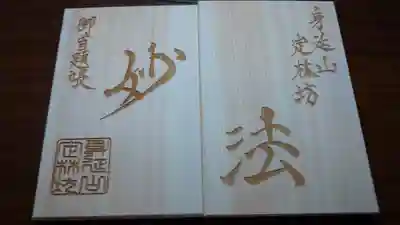 身延山
定林坊
法
御首題帳
妙
身延山
定林坊